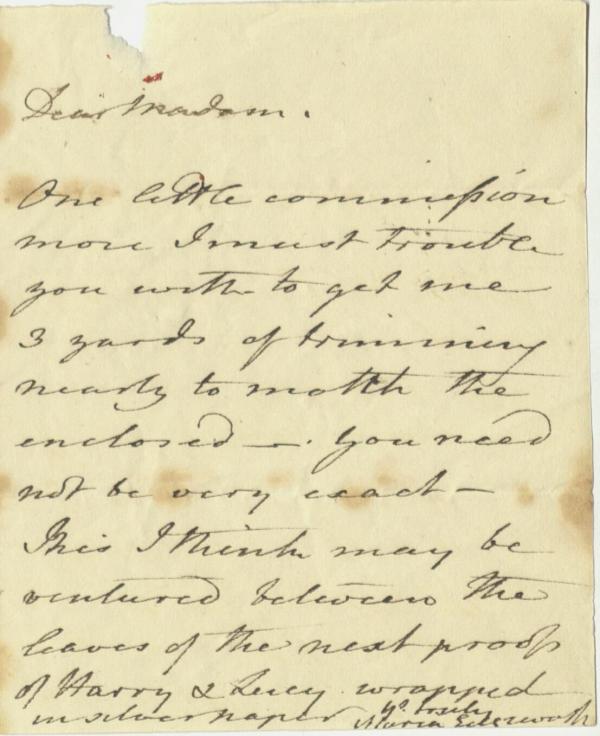 Dear Madam.
One little commission
more I must trouble
you with to get me
3 yards of trimming
nearly to match the
enclosed —. You need
not be very exact —
This I think may be
ventured between the
leaves of the next proof
of Harry & Lucy wrapped
in silver paper yrs truly
Maria Edgeworth